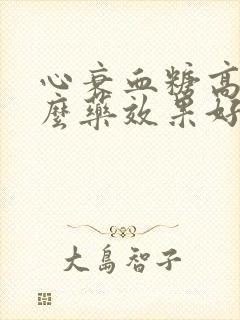 心衰血糖高
麼藥效果好
大島智子